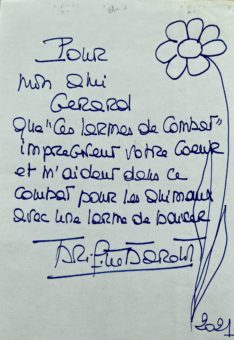 Pour
mon ami
Gerard
que "Ces larmes de combat"
impregnent votre Coeur
et m'aident dans ce
combat pour les animaux
avec une larme de
2021